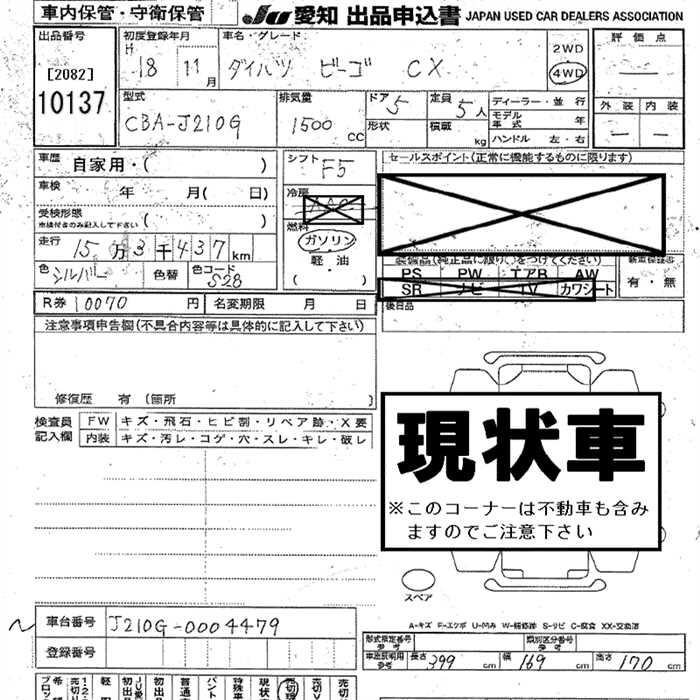 車内保管・守衛保管
JU 愛知 出品申込書 JAPAN USED CAR DEALERS ASSOCIATION
出品番号
[2082]
10137
初度登録年月
H 18 11月
車名・グレード
ダイハツ ビーゴ CX
2WD
4WD
評価点
外装 内装
型式
CBA-J210G
排気量
1500 cc
ドア 5
形状
定員 5人
積載 kg
ディーラー・並行
モデル年式 年
ハンドル 左・右
車歴 自家用・( )
車検 年 月( 日)
受検形態
車検付きのみ記入して下さい ( )
走行 15万3千437km
色 シルバー 色替 色コード S28
シフト F5
冷房
AAC
燃料
ガソリン
軽・油
( )
セールスポイント(正常に機能するものに限ります)
装備品(純正品に限り○をつけてください)
PS PW エアB AW
SR ナビ TV カワシート
新車保証書
有・無
後日品
R券 10070 円 名変期限 月 日
注意事項申告欄(不具合内容等は具体的に記入して下さい)
修復歴 有 (箇所 )
検査員記入欄
FW キズ・飛石・ヒビ割・リペア跡・X要
内装 キズ・汚レ・コゲ・穴・スレ・キレ・破レ
現状車
※このコーナーは不動車も含み
ますのでご注意下さい
スペア
A-キズ F-エクボ U-凹み W-補修跡 S-サビ C-腐食 XX-交換済
車台番号 J210G-0004479
登録番号
形式指定番号 参考
類別区分番号 参考
車両証明用 参考 長さ 399 cm 幅 169 cm 高さ 170 cm